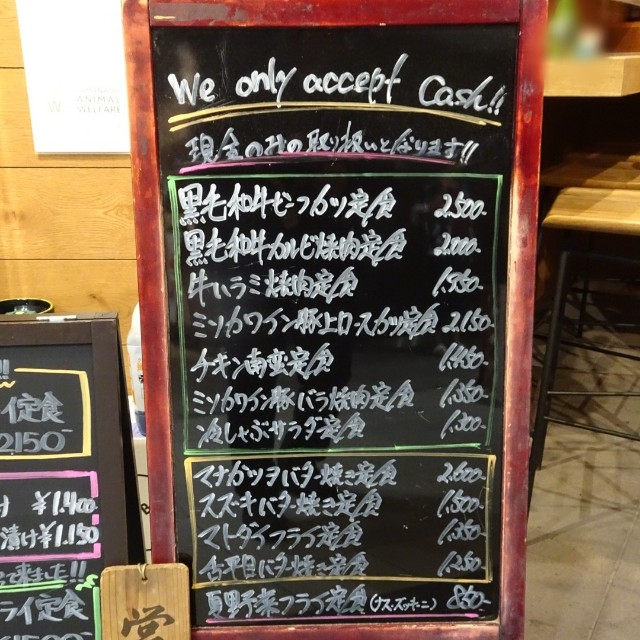 ANIMAL
WELFARE
We only accept Cash!!
現金のみの取り扱いとなります!!
黒毛和牛ビーフカツ定食 2,500-
黒毛和牛カルビ焼肉定食 2,000-
牛ハラミ焼肉定食 1,550-
ミツカワイン豚上ロースカツ定食 2,150-
チキン南蛮定食 1,450-
ミツカワイン豚バラ焼肉定食 1,350-
冷しゃぶサラダ定食 1,300-
マナガツヲバター焼き定食 2,600-
スズキバター焼き定食 1,500-
マトダイフライ定食 1,350-
舌平目バター焼き定食 1,250-
夏野菜フライ定食(ナス・ズッキーニ) 850-
!!
イ定食
2150
¥1,400
漬け¥1,150
て来ました!!
ライ定食
¥1500
営